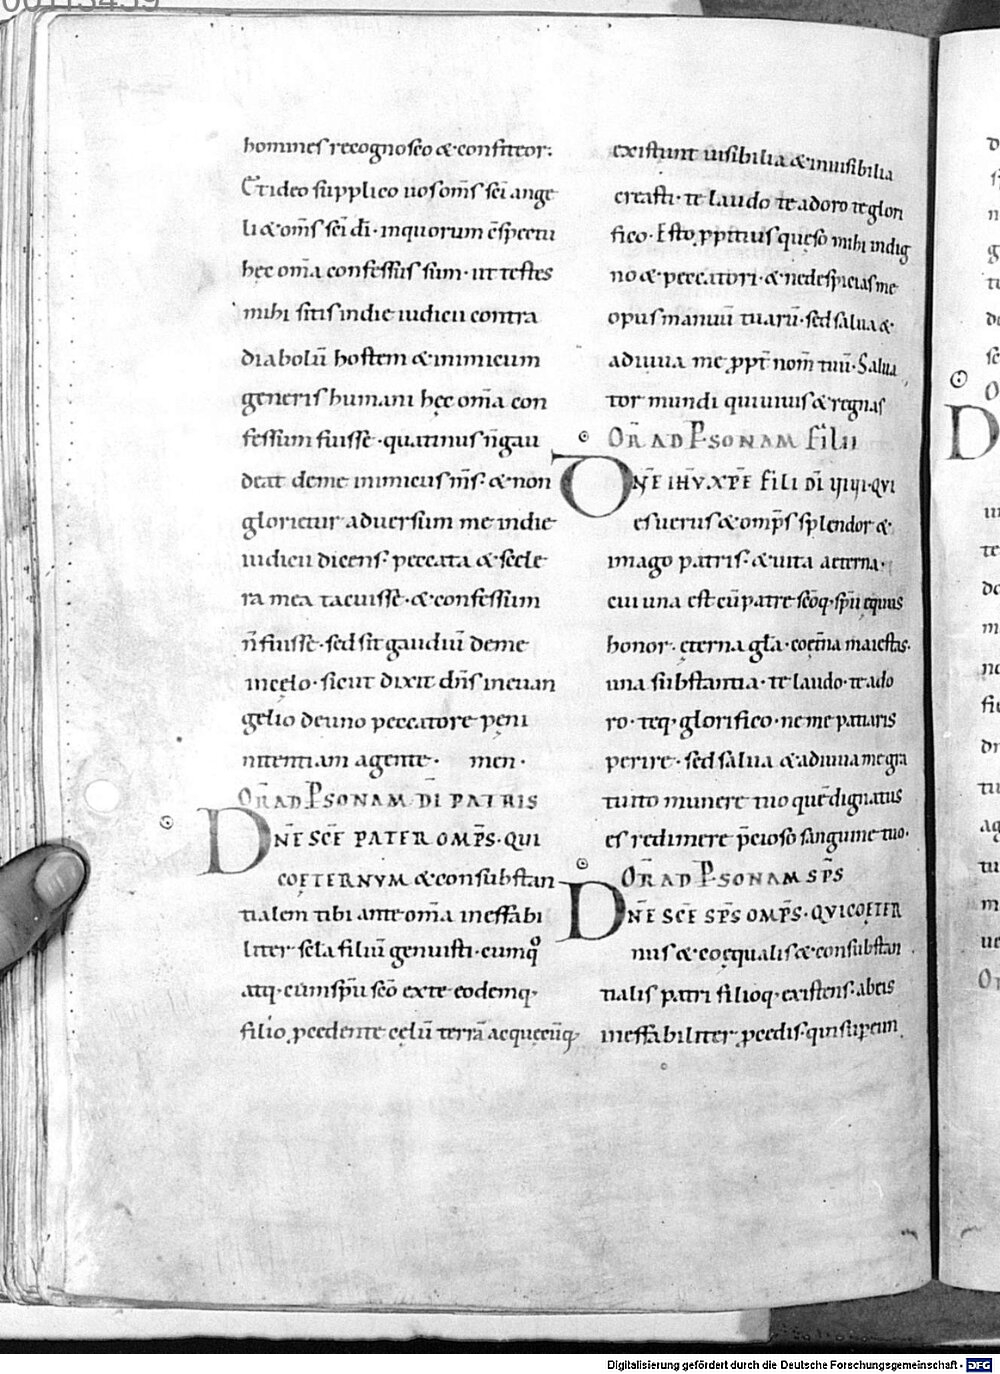 homines recognosco & confiteor:
Et ideo supplico uos om̄s sc̄i ange
li & om̄s sc̄i dī · in quorum c̄spectu
hęc om̄a confessus sum · ut testes
mihi sitis in die iudicii contra
diabolū hostem & inimicum
generis humani hęc om̄a con
fessum fuisse · quatinus n̄ gau
deat de me inimicus m̄s · & non
glorietur aduersum me in die
iudicii dicens · peccata & scele
ra mea tacuisse · & confessum
n̄ fuisse · sed sit gaudiū de me
in cęlo · sicut dixit dn̄s in euan
gelio de uno peccatore pęni
tentiam agente · men ·
OR̄ AD P̱SONAM DĪ PATRIS
DN̄E SC̄E PATER OMP̄S · QUI
COETERNVM & consubstan
tialem tibi ante om̄a ineffabi
liter scla filiū genuisti · cum qͦ
atq; cum sp̄u sc̄o ex te eodemq;
filio ꝓcedente cęlū terrā ac quęcūq;
existunt uisibilia & inuisibilia
creasti · te laudo te adoro te glori
fico · Esto ꝓpitius quęso mihi indig
no & peccatori · & ne despicias me
opus manuū tuarū · sed salua &
adiuua me ꝓpt̄ nom̄ tuū · Salua
tor mundi qui uiuis & regnas
OR̄ AD P̱SONAM filii
DN̄E IHV̄ XP̄E fili DĪ uiui · QVI
es uerus & omp̄s splendor &
imago patris · & uita aeterna ·
cui una est cū patre sc̄oq; sp̄u ęquus
honor · ęterna gl̄a · coęt̄na maiestas ·
una substantia · te laudo · te ado
ro · teq; glorifico · ne me patiaris
perire · sed salua & adiuua me gra
tuito munere tuo quē dignatus
es redimere p̄cioso sanguine tuo ·
OR̄ AD P̱SONAM SP̄S
DN̄E SC̄E SP̄S OMP̄S · QVI COETER
nus & coęqualis & consubstan
tialis patri filioq; existens · ab eis
ineffabiliter ꝓcedis · qui sup̱ eun
Digitalisierung gefördert durch die Deutsche Forschungsgemeinschaft - DFG